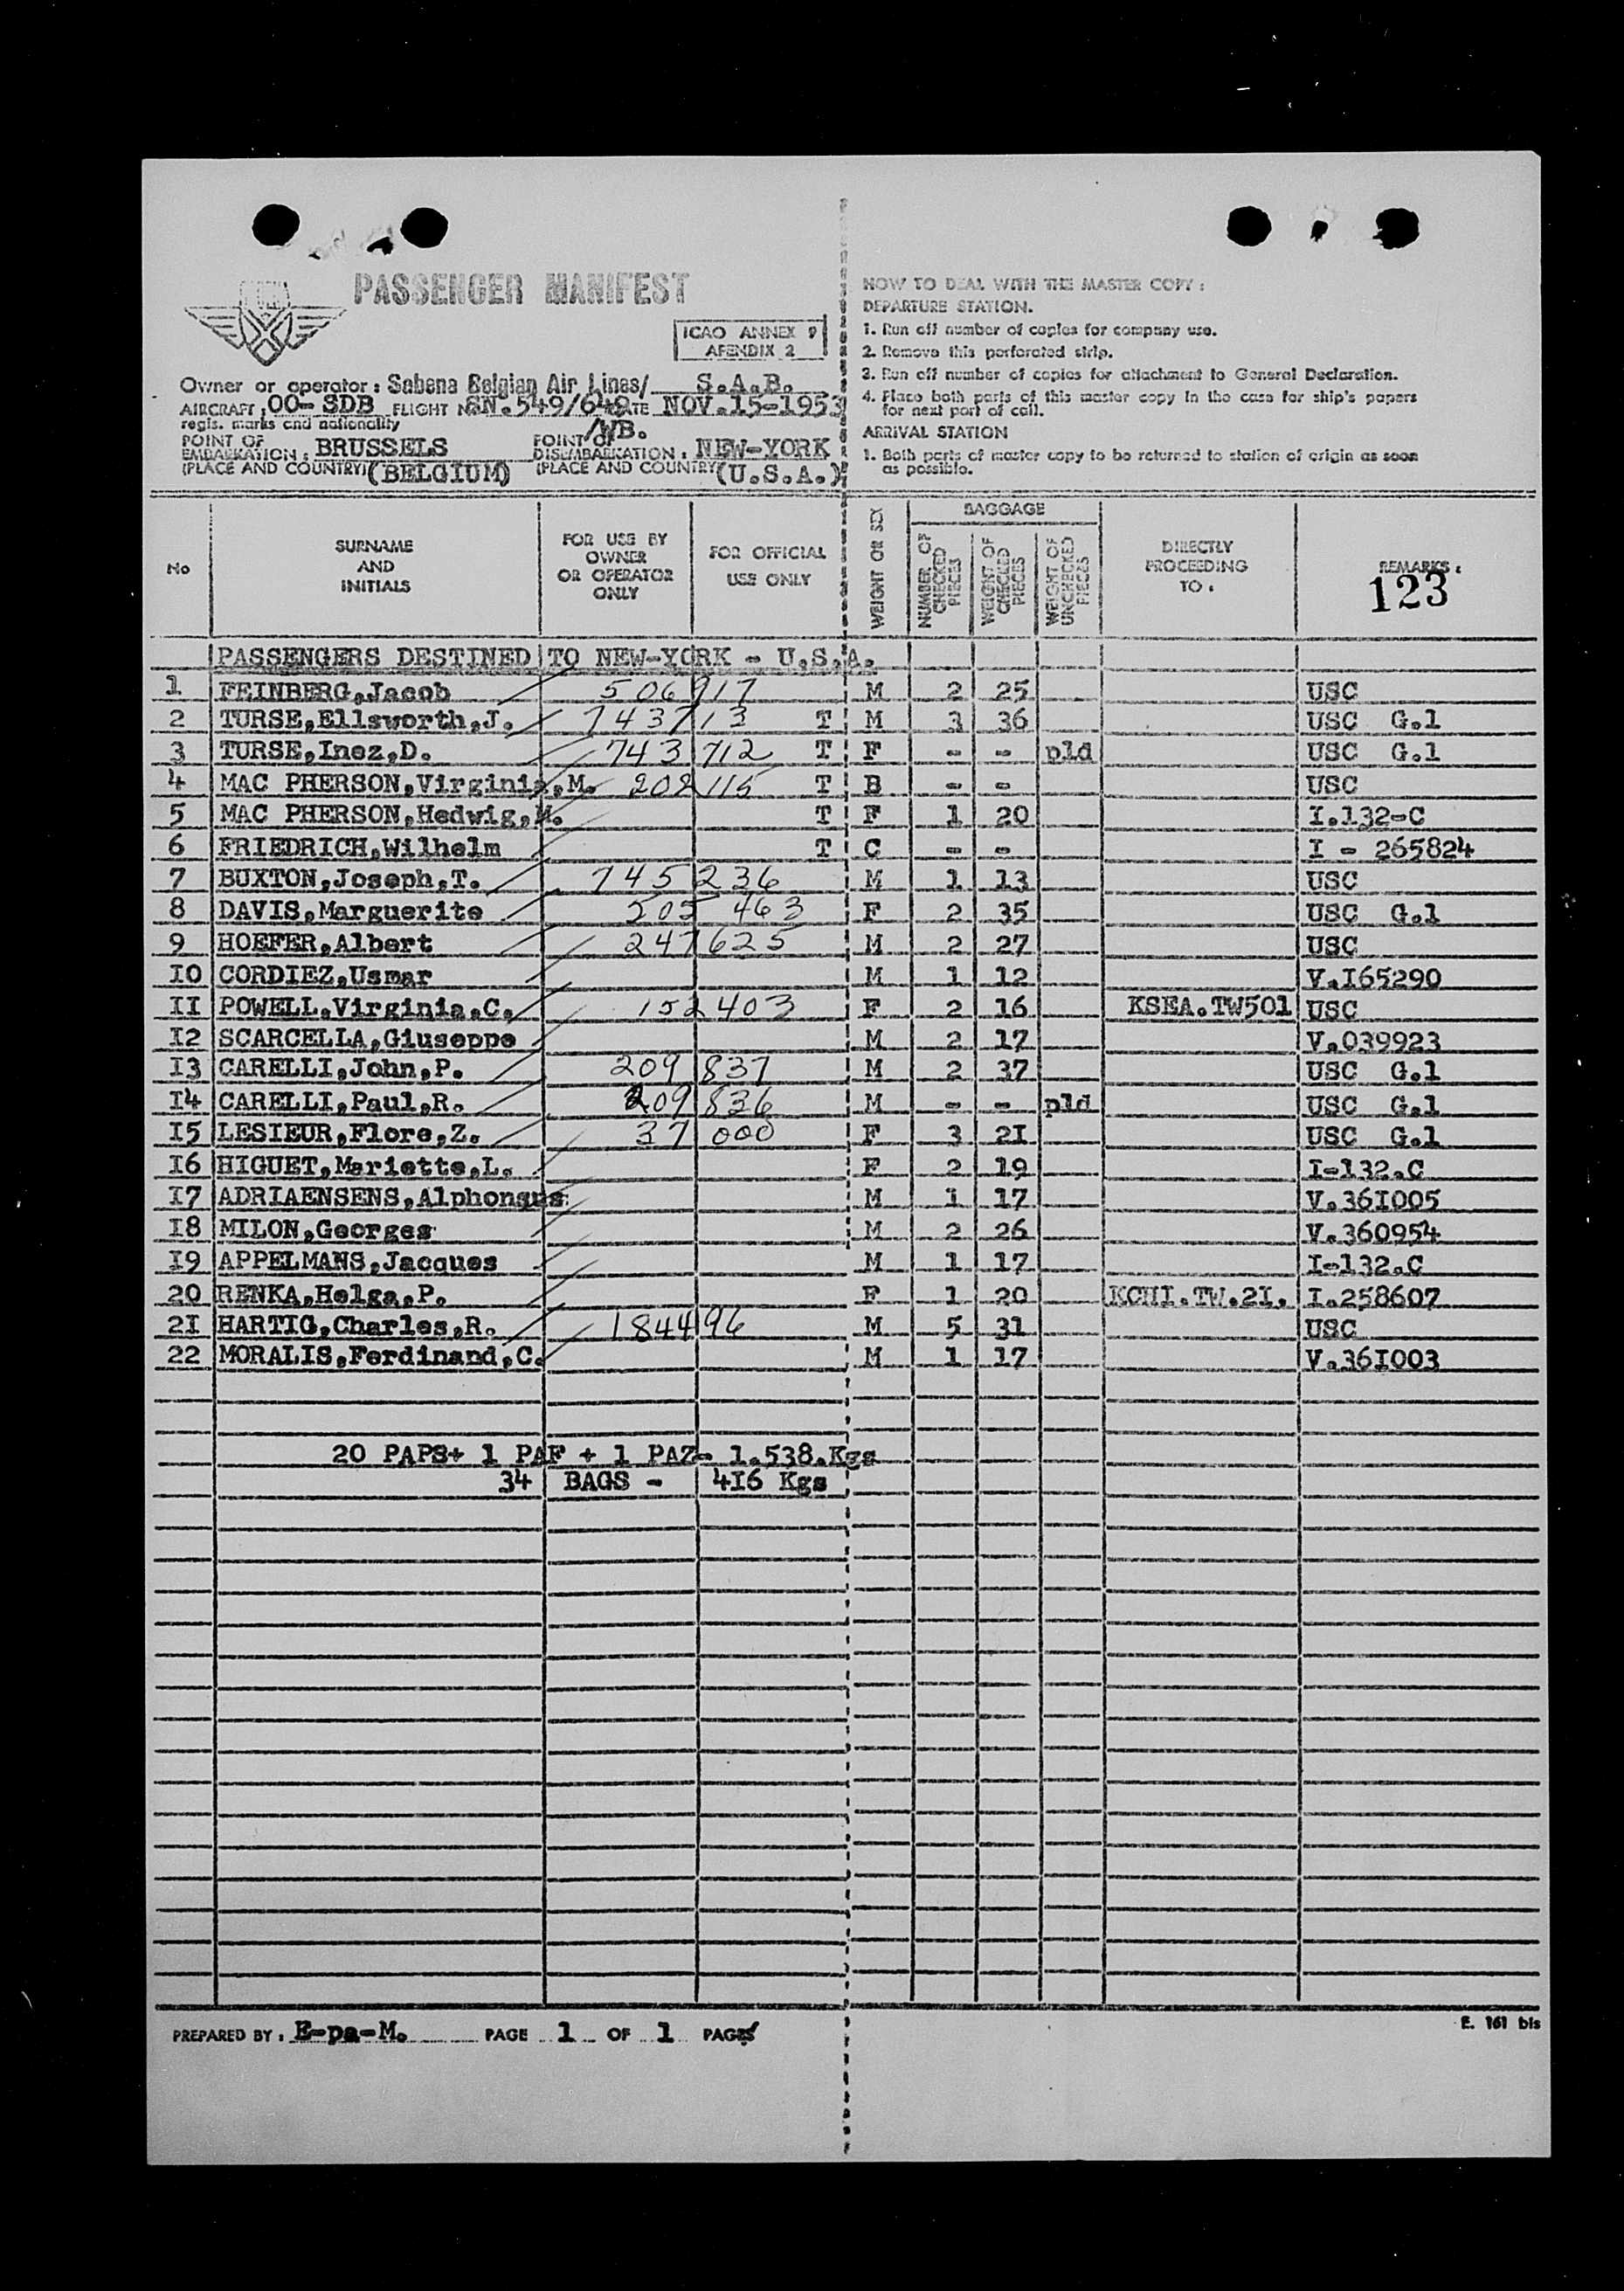 PASSENGER MANIFEST
ICAO ANNEX 9
APENDIX 2
Owner or operator : Sabena Belgian Air Lines/ S.A.B.
AIRCRAFT : OO- SDB FLIGHT No SN.549/649 DATE NOV.15-1953
regis. marks and nationality /WB.
POINT OF EMBARKATION : BRUSSELS POINT OF DISEMBARKATION : NEW-YORK
(PLACE AND COUNTRY) (BELGIUM) (PLACE AND COUNTRY) (U.S.A.)
HOW TO DEAL WITH THE MASTER COPY :
DEPARTURE STATION.
1. Run off number of copies for company use.
2. Remove this perforated strip.
3. Run off number of copies for attachment to General Declaration.
4. Place both parts of this master copy in the case for ship's papers
for next port of call.
ARRIVAL STATION
1. Both parts of master copy to be returned to station of origin as soon
as possible.
No SURNAME AND INITIALS FOR USE BY OWNER OR OPERATOR ONLY FOR OFFICIAL USE ONLY WEIGHT OR SEX BAGGAGE NUMBER OF CHECKED PIECES WEIGHT OF CHECKED PIECES WEIGHT OF UNCHECKED PIECES DIRECTLY PROCEEDING TO : REMARKS :
123
PASSENGERS DESTINED TO NEW-YORK - U.S.A.
1 FEINBERG,Jacob 506917 M 2 25 USC
2 TURSE,Ellsworth,J. 743713 T M 3 36 USC G.1
3 TURSE,Inez,D. 743712 T F - - pld USC G.1
4 MAC PHERSON,Virginia,M. 202115 T B - - USC
5 MAC PHERSON,Hedwig,M. T F 1 20 I.132-C
6 FRIEDRICH,Wilhelm T C - - I - 265824
7 BUXTON,Joseph,T. 745236 M 1 13 USC
8 DAVIS,Marguerite 505 463 F 2 35 USC G.1
9 HOEFER,Albert 247625 M 2 27 USC
I0 CORDIEZ,Usmar M 1 12 V.I65290
II POWELL,Virginia,C. 152403 F 2 16 KSEA.TW501 USC
I2 SCARCELLA,Giuseppe M 2 17 V.039923
I3 CARELLI,John,P. 209 837 M 2 37 USC G.1
I4 CARELLI,Paul,R. 209 836 M - - pld USC G.1
I5 LESIEUR,Flore,Z. 37 000 F 3 2I USC G.1
I6 HIGUET,Mariette,L. F 2 19 I-132.C
I7 ADRIAENSENS,Alphonsus M 1 17 V.36I005
I8 MILON,Georges M 2 26 V.360954
I9 APPELMANS,Jacques M 1 17 I-132.C
20 RENKA,Helga,P. F 1 20 KCHI.TW.2I. I.258607
2I HARTIG,Charles,R. 184496 M 5 31 USC
22 MORALIS,Ferdinand,C. M 1 17 V.36I003
20 PAPS+ 1 PAF + 1 PAZ- 1.538.Kgs
34 BAGS - 4I6 Kgs
PREPARED BY : E-pa-M. PAGE 1 OF 1 PAGES
E. 161 bis